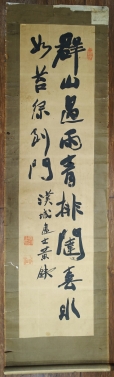 群山過雨青排闥春水
如苔綠到門 漢城處士黃